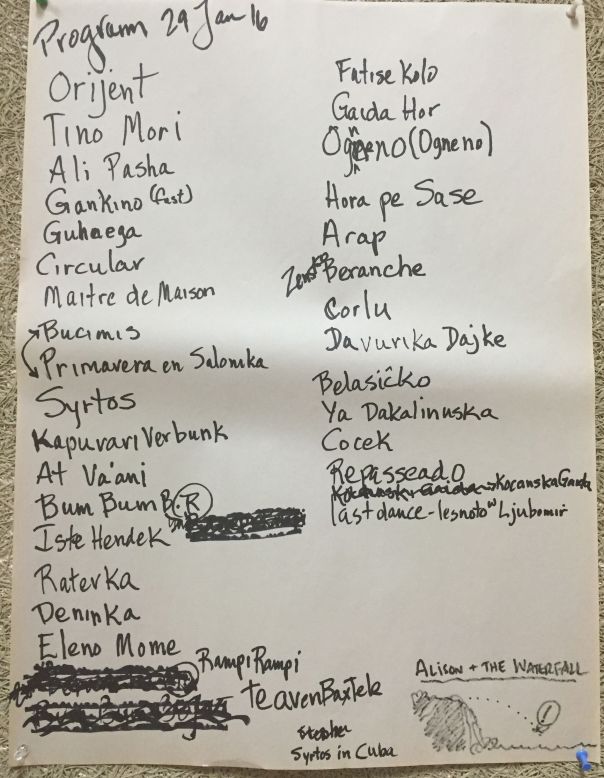 Program 29 Jan 16
Orijent
Tino Mori
Ali Pasha
Gankino (fast)
Guhaega
Circular
Maitre de Maison
Bucimis
Primavera en Salonika
Syrtos
Kapuvari Verbunk
At Va'ani
Bum Bum B. R
Iste Hendek
Raterka
Deninka
Eleno Mome
Rampi Rampi
teaven Bax Tele
Stephe
Syrtos in Cuba
Fatise Kolo
Gaida Hor
(Ogneno)
Hora pe Sase
Arap
Beranche
Corlu
Davurika Dajke
Belasičko
Ya Dakalinuska
Cocek
Repasseado
Kocanska Gaida
last dance - lesnoto w Ljubomir
ALISON + THE WATERFALL
!